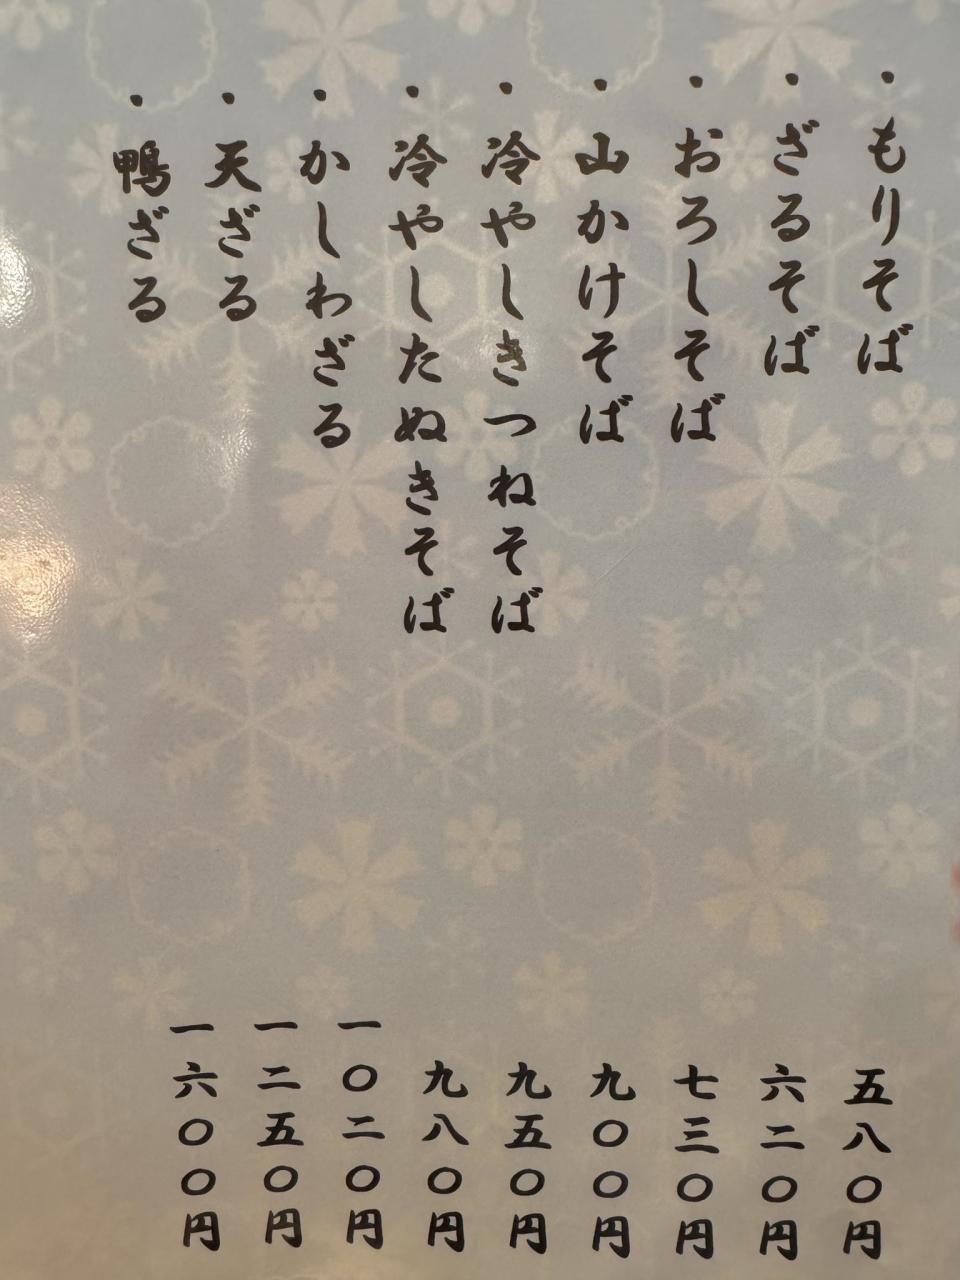 ・もりそば 五八〇円
・ざるそば 六二〇円
・おろしそば 七三〇円
・山かけそば 九〇〇円
・冷やしきつねそば 九五〇円
・冷やしたぬきそば 九八〇円
・かしわざる 一〇二〇円
・天ざる 一二五〇円
・鴨ざる 一六〇〇円